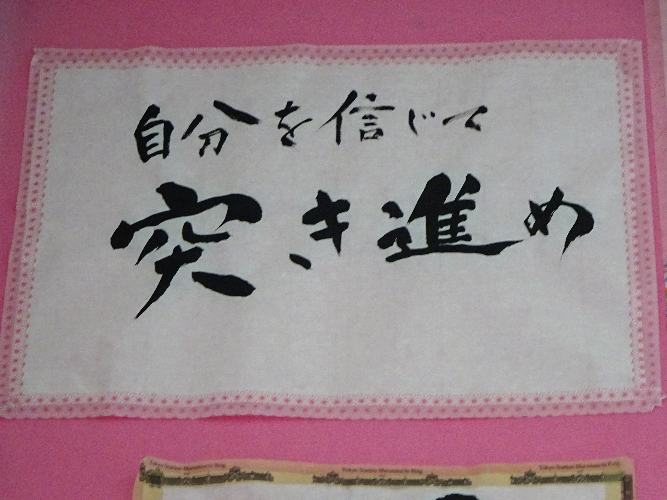 自分を信じて
突き進め